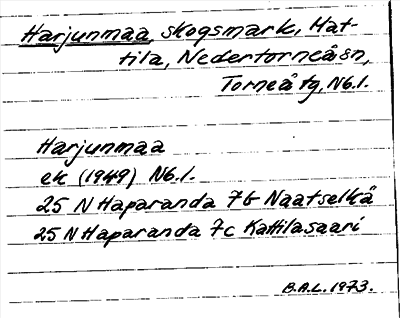 Harjunmaa, skogsmark, Hat-
tila, Nedertorneå sn,
Torneå tg, Nb.l.
Harjunmaa
ek (1949) Nb.l.
25 N Haparanda 7b Naatselkä
25 N Haparanda 7c Kattilasaari
B.A.L. 1973.